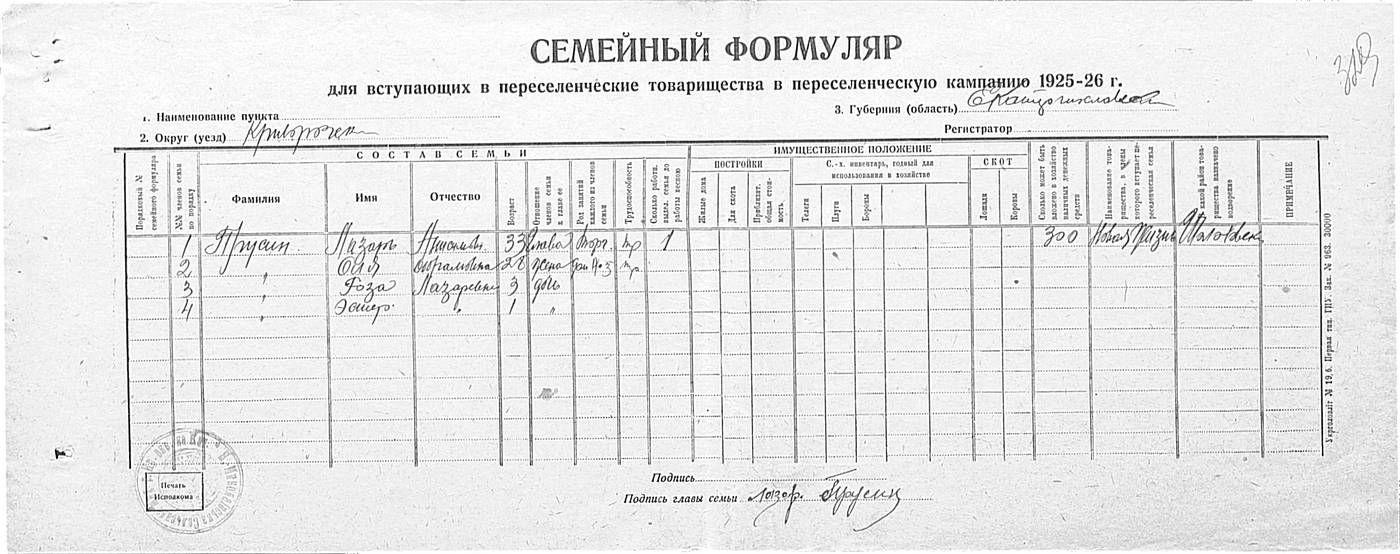 СЕМЕЙНЫЙ ФОРМУЛЯР
для вступающих в переселенческие товарищества в переселенческую кампанию 1925-26 г.
1. Наименование пункта
3. Губерния (область)
2. Округ (уезд)
Регистратор
СОСТАВ СЕМЬИ
ИМУЩЕСТВЕННОЕ ПОЛОЖЕНИЕ
Порядковый № семейного формуляра
№№ членов семьи по порядку
Фамилия
Имя
Отчество
Возраст
Отношение членов семьи к главе ее
Род занятий каждого из членов семьи
Трудоспособность
Сколько работн. высел. семья до работы весною
ПОСТРОЙКИ
Жилые дома
Для скота
Приблизит. общая стоимость
С.-х. инвентарь, годный для использования в хозяйстве
Телеги
Плуги
Бороны
СКОТ
Лошади
Коровы
Сколько может быть вложено в хозяйство наличных денежных средств
Наименование товарищества, в члены которого вступает переселенческая семья
какой район товарищества назначено водворение
ПРИМЕЧАНИЕ
1 Прусин Лазарь 33 глава Торг. тр 1 300 Новая Жизнь
2 " жена тр
3 " Роза Лазаревна 3 дочь
4 " Эстер " 1 "
Подпись
Подпись главы семьи Лазар. Прусин
Печать Исполкома
Укрголовліт № 19,6. Первая тип. ГПУ. Зак. № 963. 30000